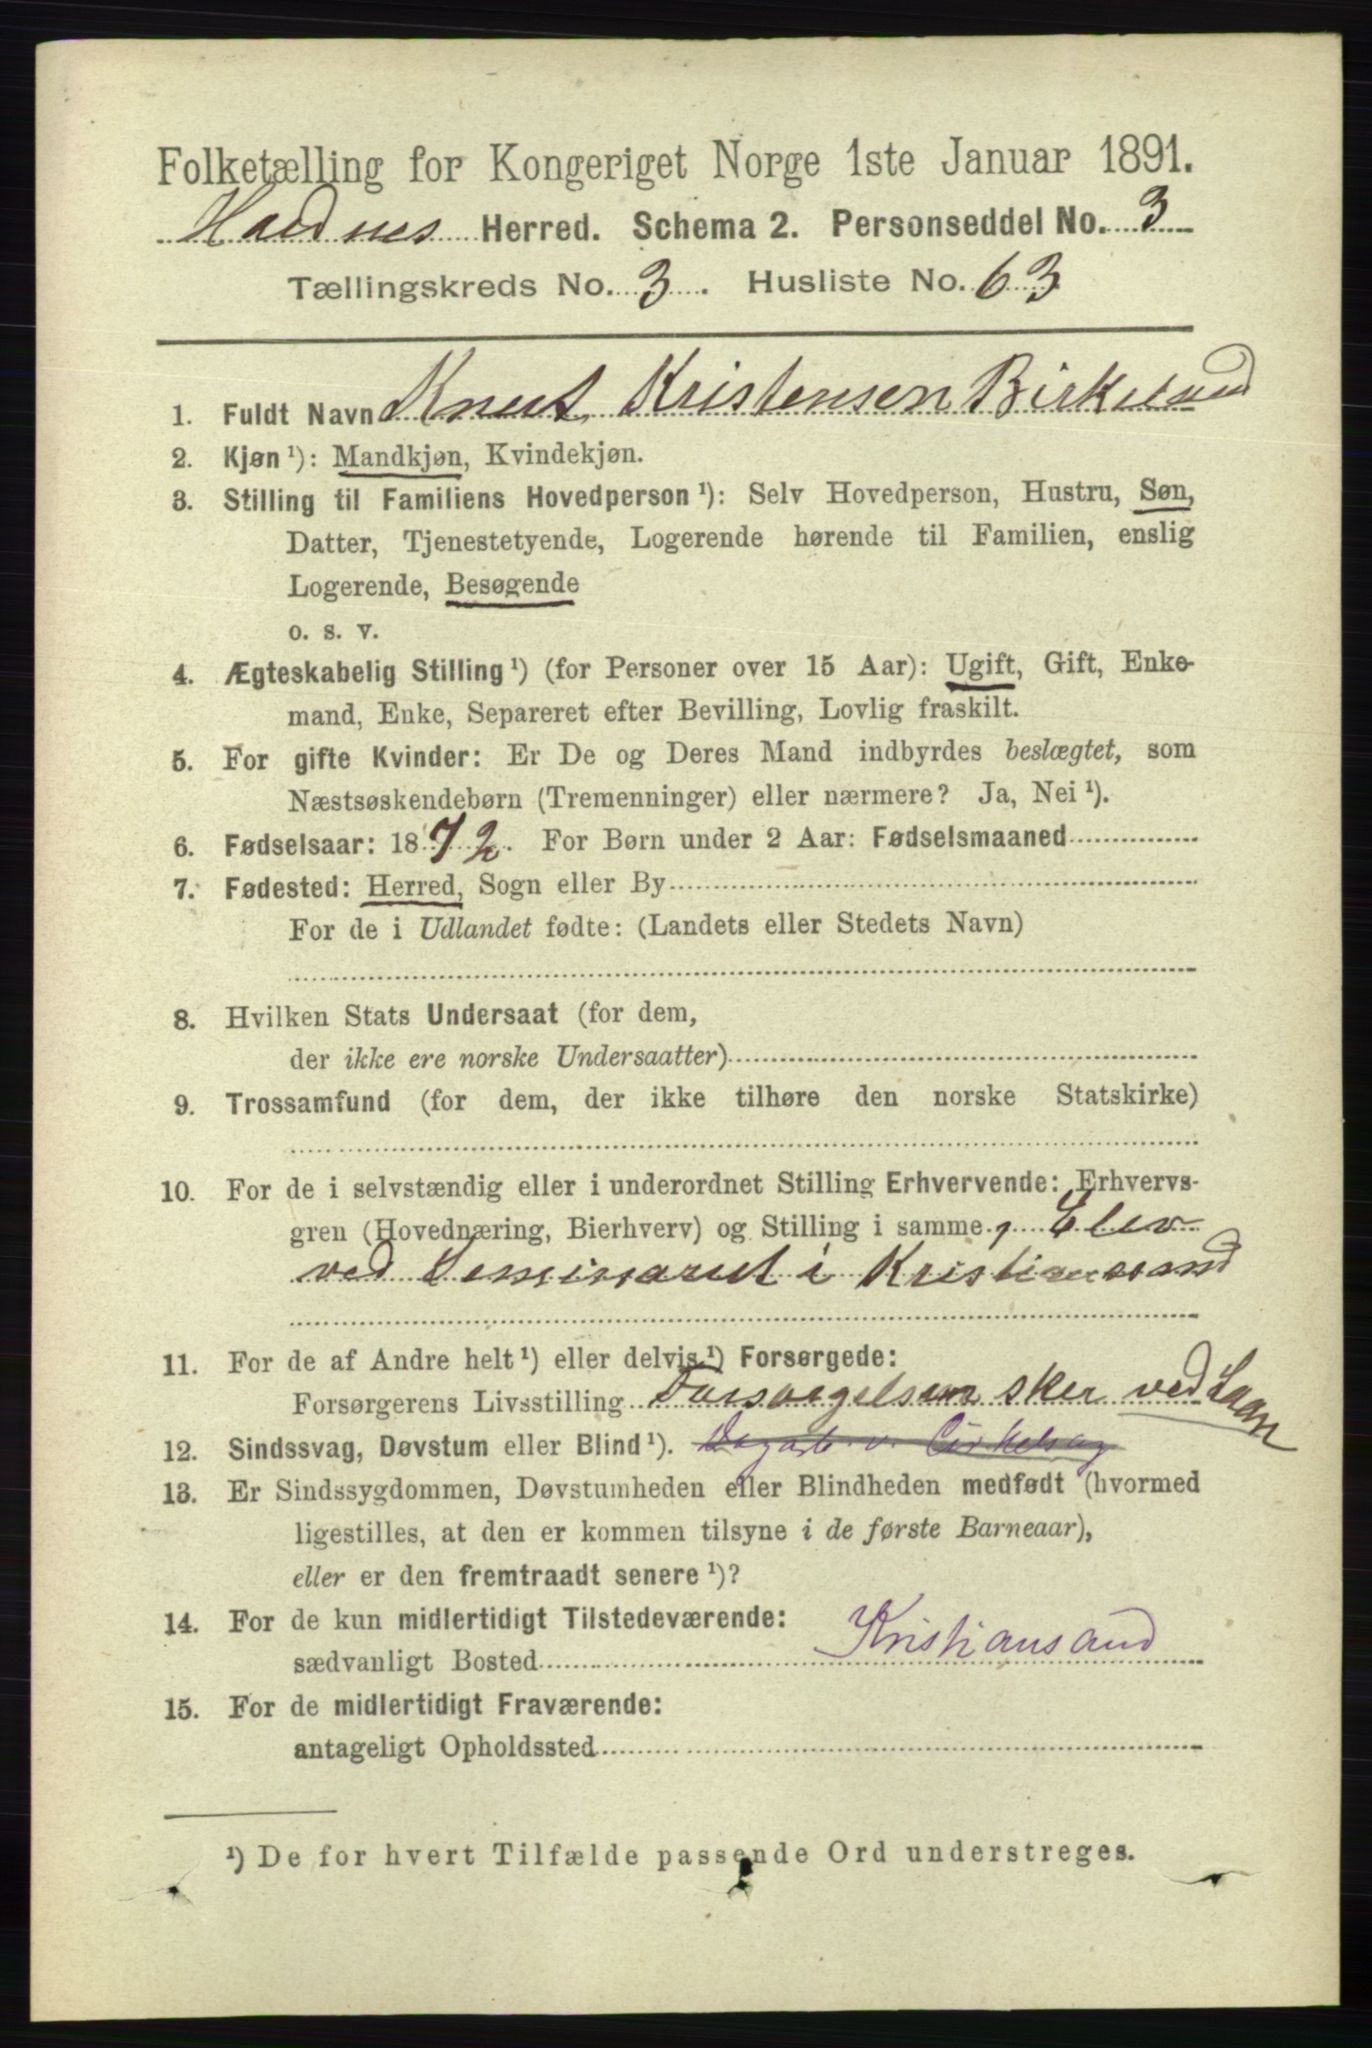 Folketælling for Kongeriget Norge 1ste Januar 1891.
Herred. Schema 2. Personseddel No. 3
Tællingskreds No. 3. Husliste No. 63
1. Fuldt Navn Knut Kristensen Birkeland
2. Kjøn ¹): Mandkjøn, Kvindekjøn.
3. Stilling til Familiens Hovedperson ¹): Selv Hovedperson, Hustru, Søn,
Datter, Tjenestetyende, Logerende hørende til Familien, enslig
Logerende, Besøgende
o. s. v.
4. Ægteskabelig Stilling ¹) (for Personer over 15 Aar): Ugift, Gift, Enke-
mand, Enke, Separeret efter Bevilling, Lovlig fraskilt.
5. For gifte Kvinder: Er De og Deres Mand indbyrdes beslægtet, som
Næstsøskendebørn (Tremenninger) eller nærmere? Ja, Nei ¹).
6. Fødselsaar: 1872. For Børn under 2 Aar: Fødselsmaaned
7. Fødested: Herred, Sogn eller By
For de i Udlandet fødte: (Landets eller Stedets Navn)
8. Hvilken Stats Undersaat (for dem,
der ikke ere norske Undersaatter)
9. Trossamfund (for dem, der ikke tilhøre den norske Statskirke)
10. For de i selvstændig eller i underordnet Stilling Erhvervende: Erhvervs-
gren (Hovednæring, Bierhverv) og Stilling i samme, Elev
ved Seminariet i Kristianssand
11. For de af Andre helt ¹) eller delvis ¹) Forsørgede:
Forsørgerens Livsstilling Forsørgelsen sker ved Laan
12. Sindssvag, Døvstum eller Blind ¹). v. Cirkelsag
13. Er Sindssygdommen, Døvstumheden eller Blindheden medfødt (hvormed
ligestilles, at den er kommen tilsyne i de første Barneaar),
eller er den fremtraadt senere ¹)?
14. For de kun midlertidigt Tilstedeværende:
sædvanligt Bosted Kristiansand
15. For de midlertidigt Fraværende:
antageligt Opholdssted
¹) De for hvert Tilfælde passende Ord understreges.